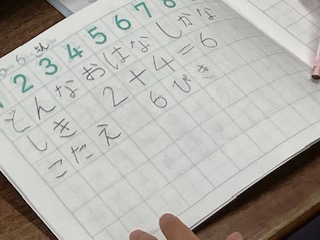 2 3 4 5 6 7 8
どんなおはなしかな
しき 2+4=6
こたえ 6ぴき